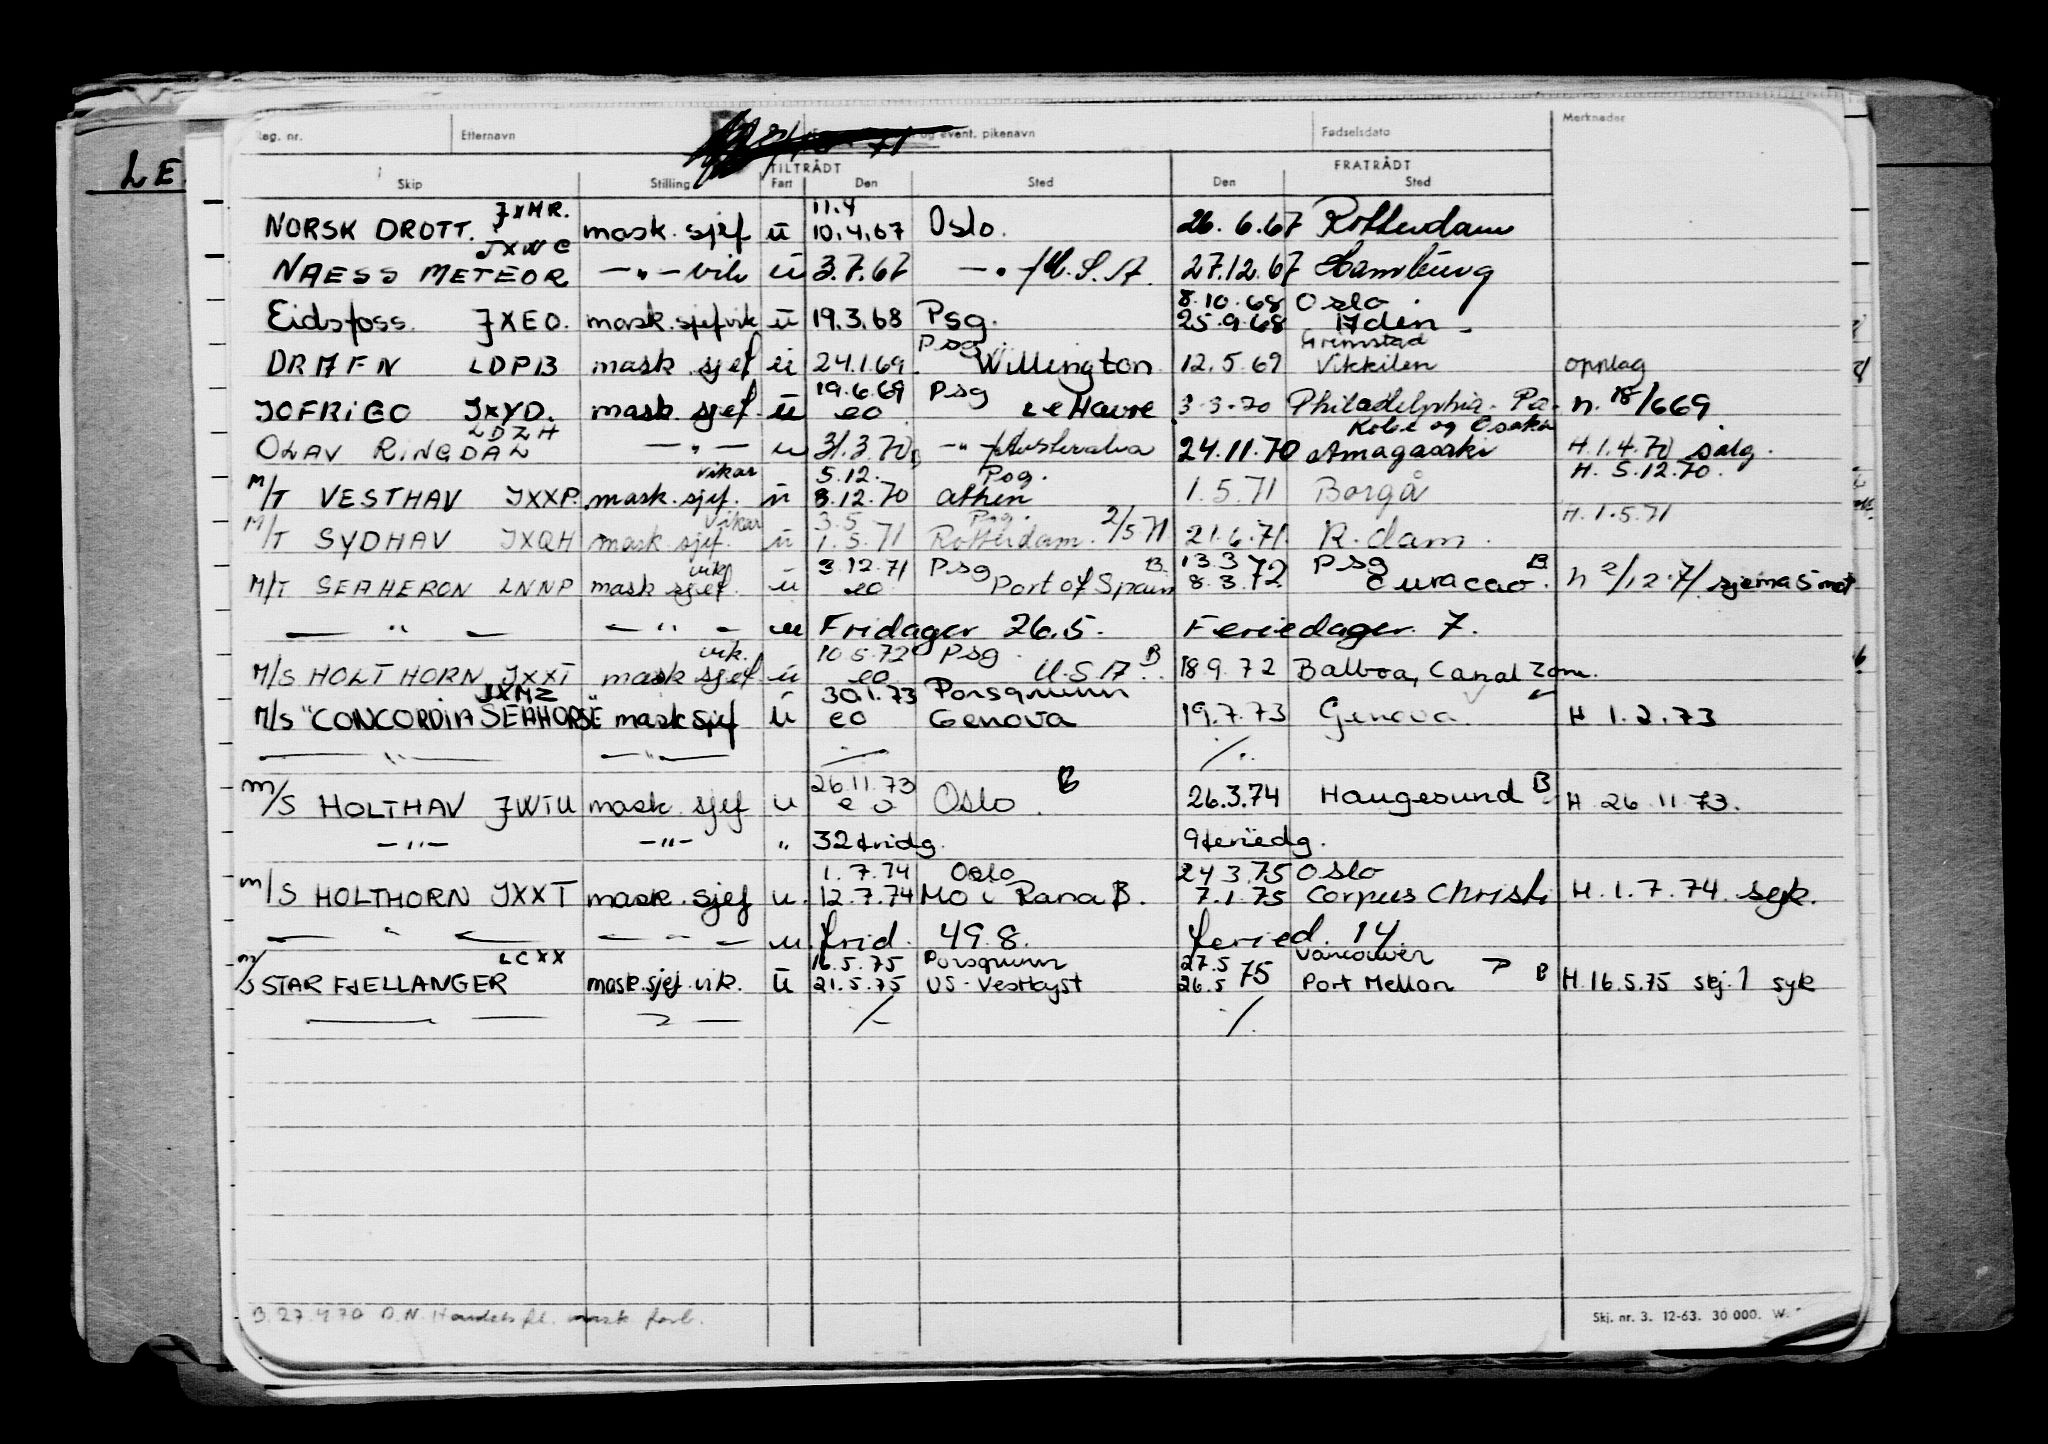 LE
Reg. nr. Etternavn og event. pikenavn Fødselsdato Merknader
71
TILTRÅDT FRATRÅDT
Skip Stilling Fart Den Sted Den Sted
JXMR. 11.4
NORSK DROTT. mask. sjef ü 10.4.67 Oslo. 26.6.67 Rotterdam
JXWC
NAESS METEOR —"— vik ü 3.7.67 —"—/U.S.A. 27.12.67 Hamburg
8.10.68 Oslo.
Eidsfoss. JXEO. mask.sjef vik ü 19.3.68 Psg. 25.9.68 Aden
Psg. Grimstad
DRAFN LDPB mask. sjef ü 24.1.69. Willington 12.5.69 Vikkilen opplag
19.6.69 Psg
JOFRIGO JXYD. mask. sjef. ü eo Le Havre 3.3.70 Philadelphia. Pa. h. 18/669
LDZH Kobe og Osaka
OLAV RINGDAL —"— u 31.3.70 —"— Australia 24.11.70 Amagasaki H. 1.4.70 salg.
vikar 5.12. Psg. H. 5.12.70.
M/T VESTHAV JXXP. mask. sjef. ü 8.12.70 Athen 1.5.71 Borgå
vikar 3.5 Psg. H. 1.5.71
M/T SYDHAV JXQH mask. sjef. ü 1.5.71 Rotterdam. 2/5 71 21.6.71 R.dam.
vik 3.12.71 Psg B. 13.3 Psg B.
M/T SEAHERON LNNP mask sjef. ü eo Port of Spain 8.3.72 Curacao. h 2/12.71 sjømas mot
— " — — " — u Fridager 26.5. Feriedager. 7.
vik. 10.5.72 Psg. B
M/S HOLTHORN JXXT mask sjef ü eo U.S.A. 18.9.72 Balboa, Canal Zone.
JXMZ 30.1.73 Porsgrunn
M/S "CONCORDIA SEAHORSE" mask sjef ü eo Genova 19.7.73 Genova. H 1.2.73
— " — — " — ./. ./.
26.11.73 B
M/S HOLTHAV JWTU mask. sjef u eo Oslo. 26.3.74 Haugesund B H 26.11.73.
—"— —"— " 32 fridg. 9 feriedg.
1.7.74 Oslo 24.3.75 Oslo
M/S HOLTHORN JXXT mask. sjef u. 12.7.74 Mo i Rana B. 7.1.75 Corpus Christi H. 1.7.74. syk.
— " — — " — u frid. 49.8. feried. 14.
LCXX 16.5.75 Porsgrunn 27.5 Vancouver
M/S STAR FJELLANGER mask.sjef.vik. ü 21.5.75 US-Vestkyst 26.5 75 Port Mellon B H. 16.5.75 skj. 1 syk
./. ./.
B. 27.4.70 D.N. Handelsfl. mask forb.
Skj. nr. 3. 12-63. 30 000. W.